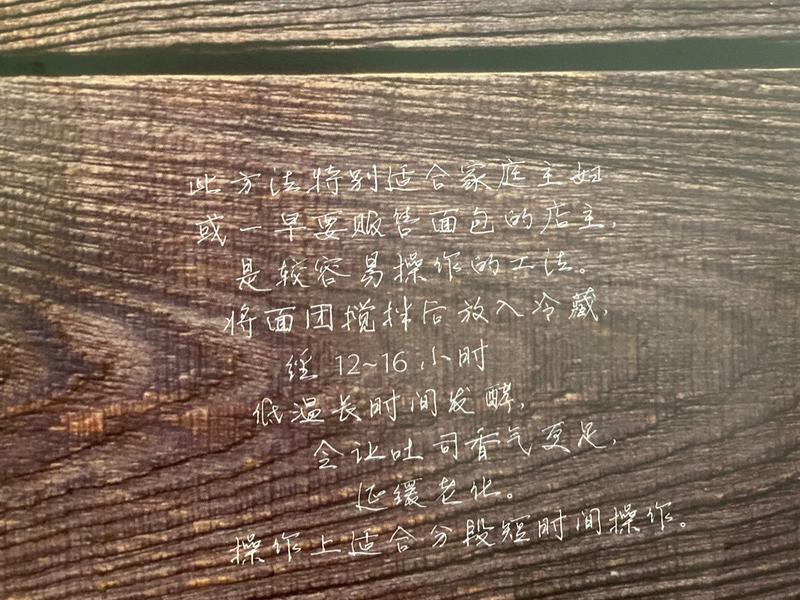 此方法特别适合家庭主妇
或一早要贩售面包的店主，
是较容易操作的工法。
将面团搅拌后放入冷藏，
经 12~16 小时
低温长时间发酵，
会让吐司香气更足，
延缓老化。
操作上适合分段短时间操作。